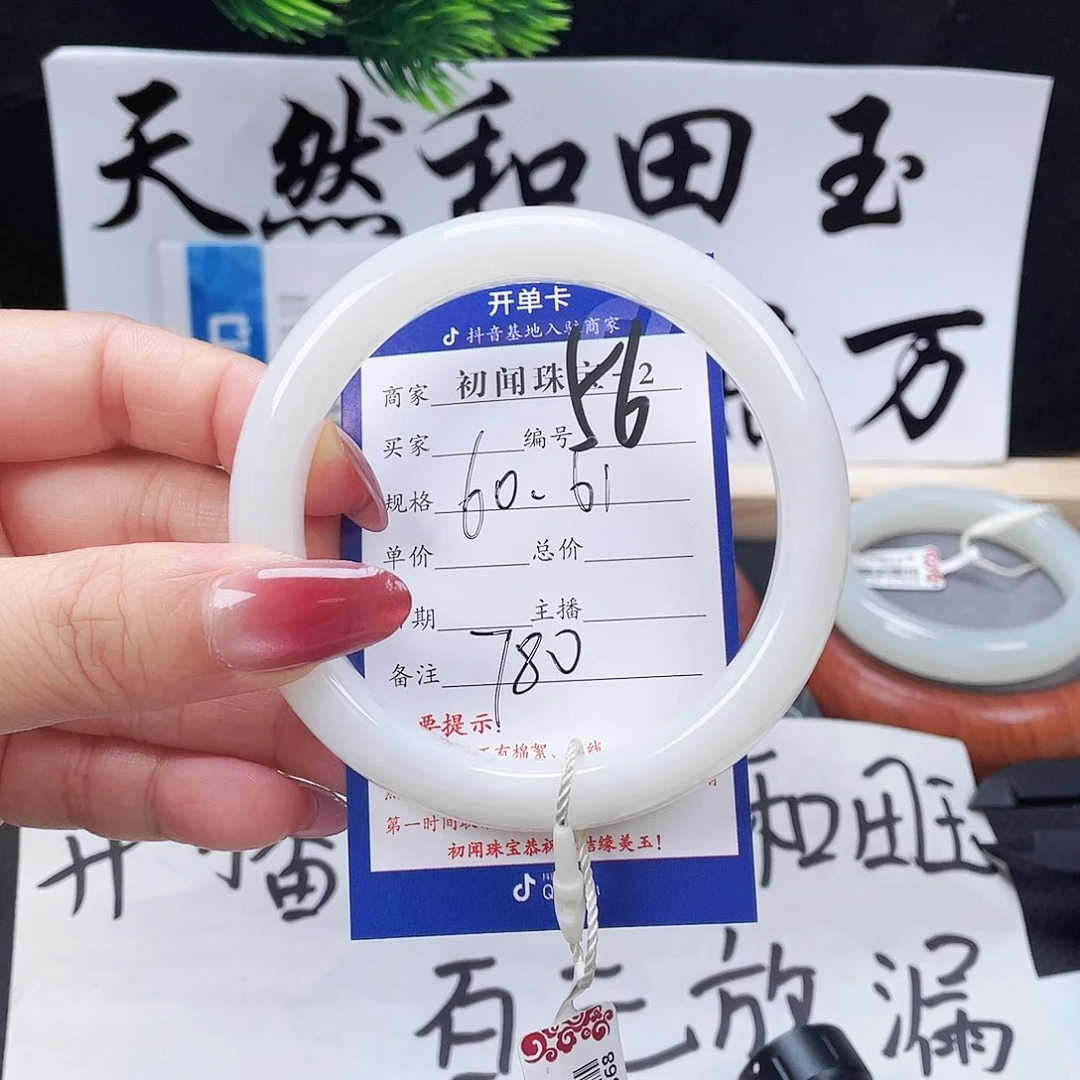 天然和田玉
万
开单卡
抖音基地入驻商家
商家 初闻珠宝-2
买家 编号 56
规格 60.61
单价 总价
期 主播
备注 780
要提示!
有棉絮、
第一时间
初闻珠宝恭祝 结缘美玉!
开播 和田玉
百元放漏